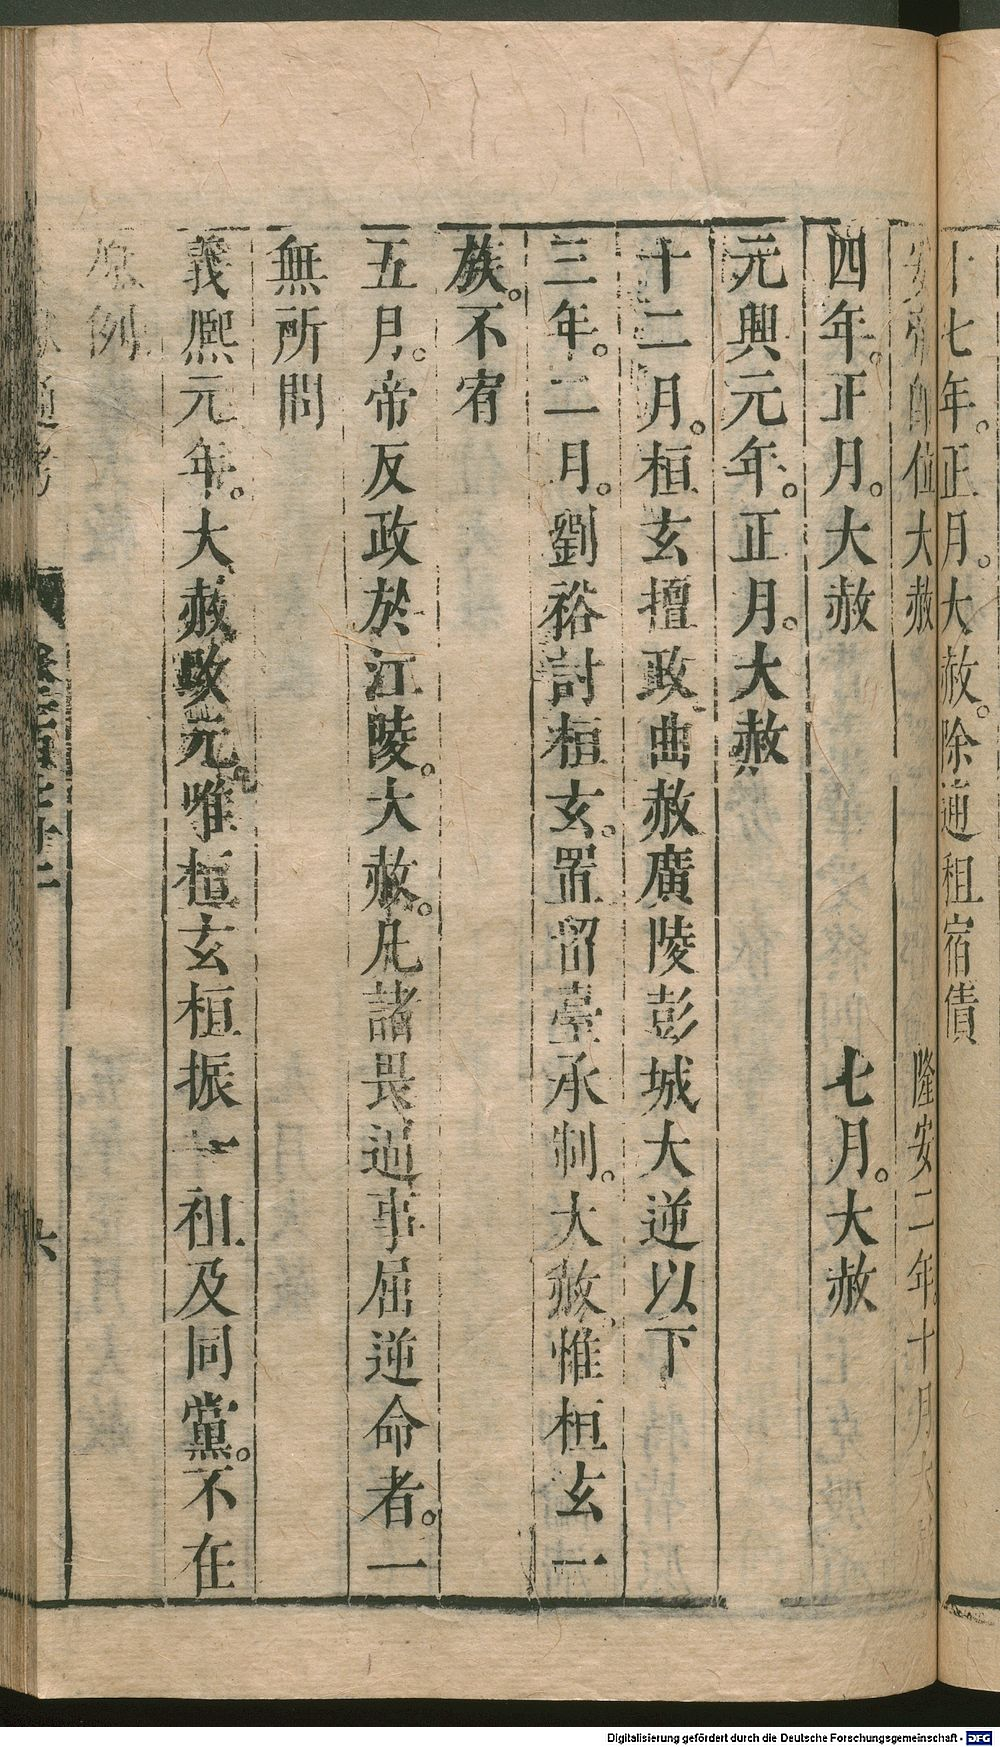 十七年。正月。大赦。除逋租宿債
安帝即位大赦　隆安二年。十月大赦
四年。正月。大赦　七月。大赦
元興元年。正月。大赦
十二月。桓玄擅政曲赦廣陵彭城大逆以下
三年。二月。劉裕討桓玄。置留臺承制。大赦惟桓玄一
族。不宥
五月。帝反政於江陵。大赦。凡諸畏逼事屈逆命者。一
無所問
義熙元年。大赦改元。唯桓玄桓振一祖及同黨。不在
原例
通考
六
Digitalisierung gefördert durch die Deutsche Forschungsgemeinschaft - DFG